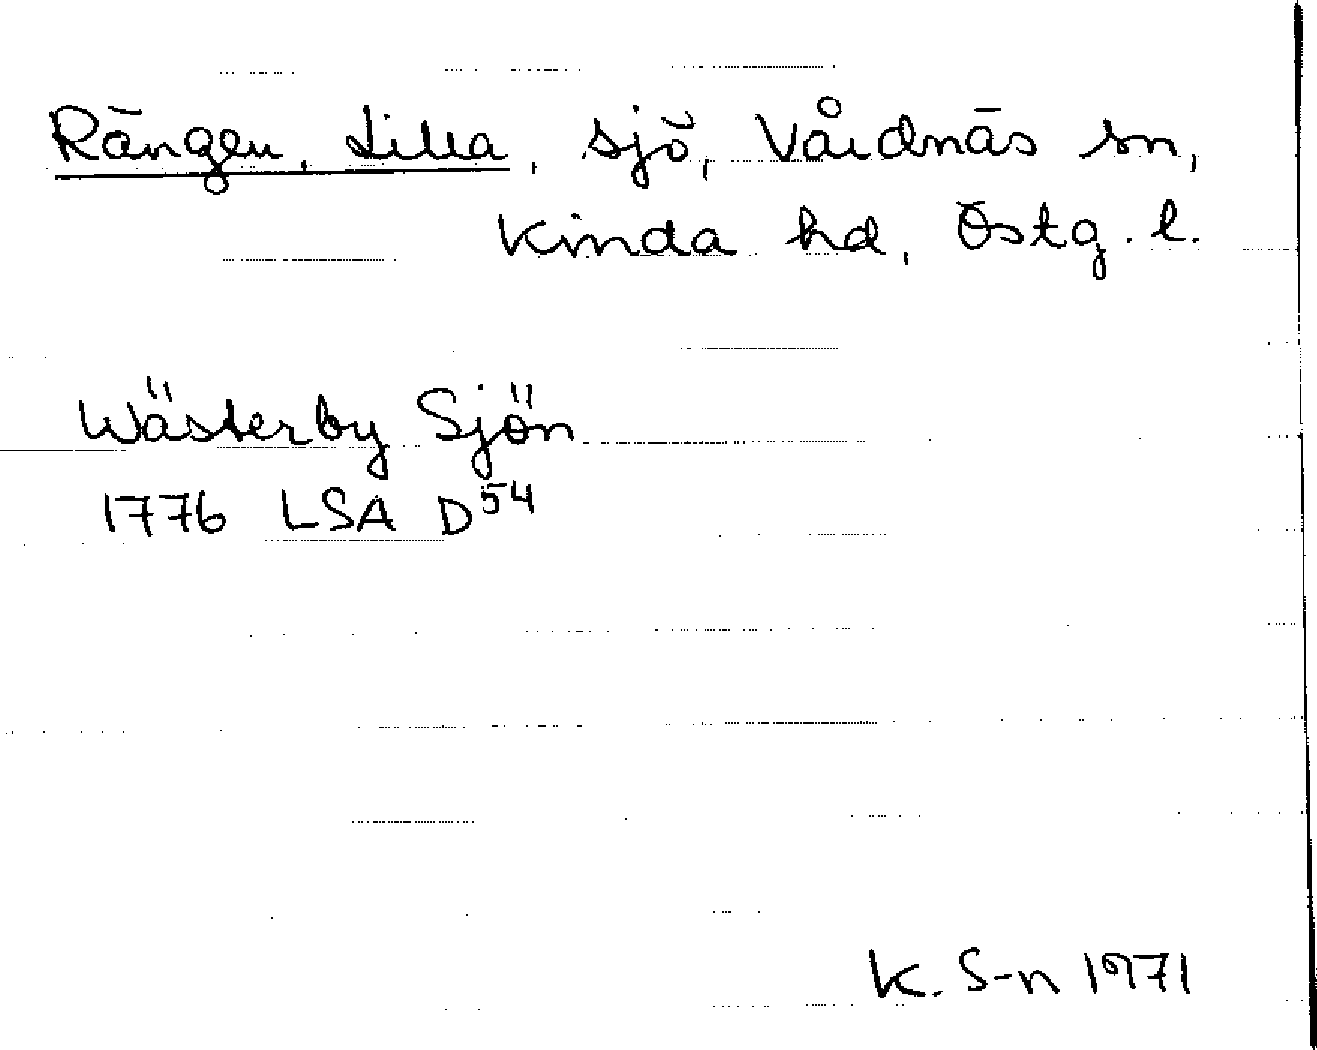 Rängen, Lilla, sjö, Vårdnäs sn,
Kinda hd, Östg. l.
Wästerby Sjön
1776 LSA D54
K. S-n 1971